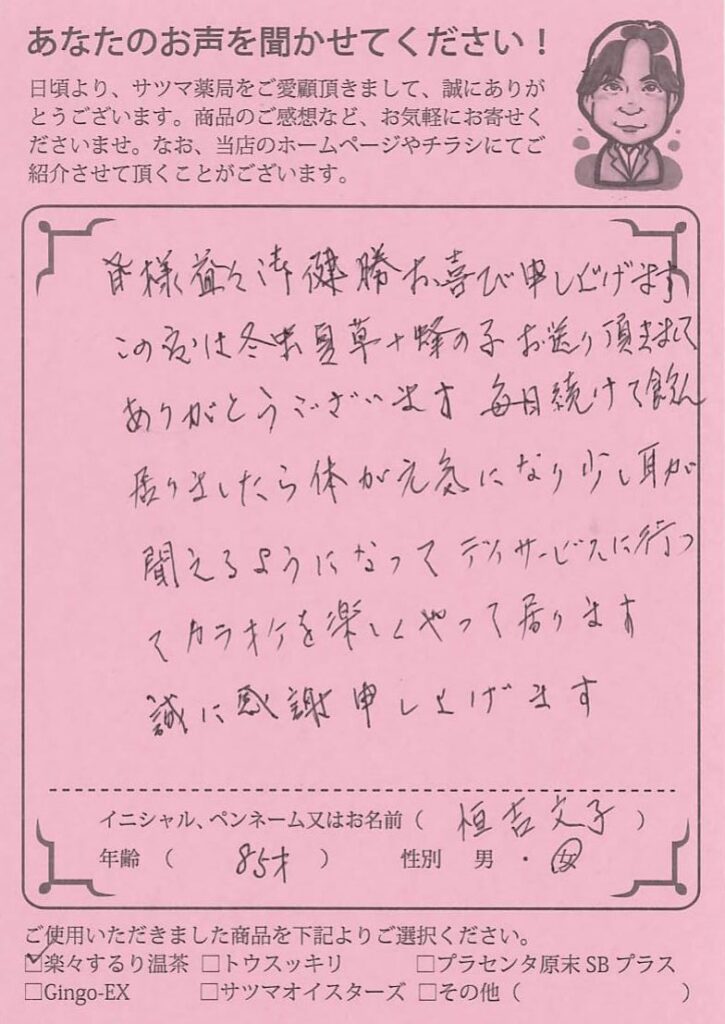 あなたのお声を聞かせてください！
日頃より、サツマ薬局をご愛顧頂きまして、誠にありが
とうございます。商品のご感想など、お気軽にお寄せく
ださいませ。なお、当店のホームページやチラシにてご
紹介させて頂くことがございます。
皆様益々御健勝お喜び申し上げます
この度は冬虫夏草+蜂の子お送り頂きまして
ありがとうございます 毎日続けて飲ん
居りましたら体が元気になり少し耳が
聞えるようになって デイサービスに行っ
てカラオケを楽しくやって居ります
誠に感謝申し上げます
イニシャル、ペンネーム又はお名前（ 垣吉文子 ）
年齢 （ 85才 ） 性別 男 ・ 女
ご使用いただきました商品を下記よりご選択ください。
☑楽々するり温茶 □トウスッキリ □プラセンタ原末 SB プラス
□Gingo-EX □サツマオイスターズ □その他（ ）